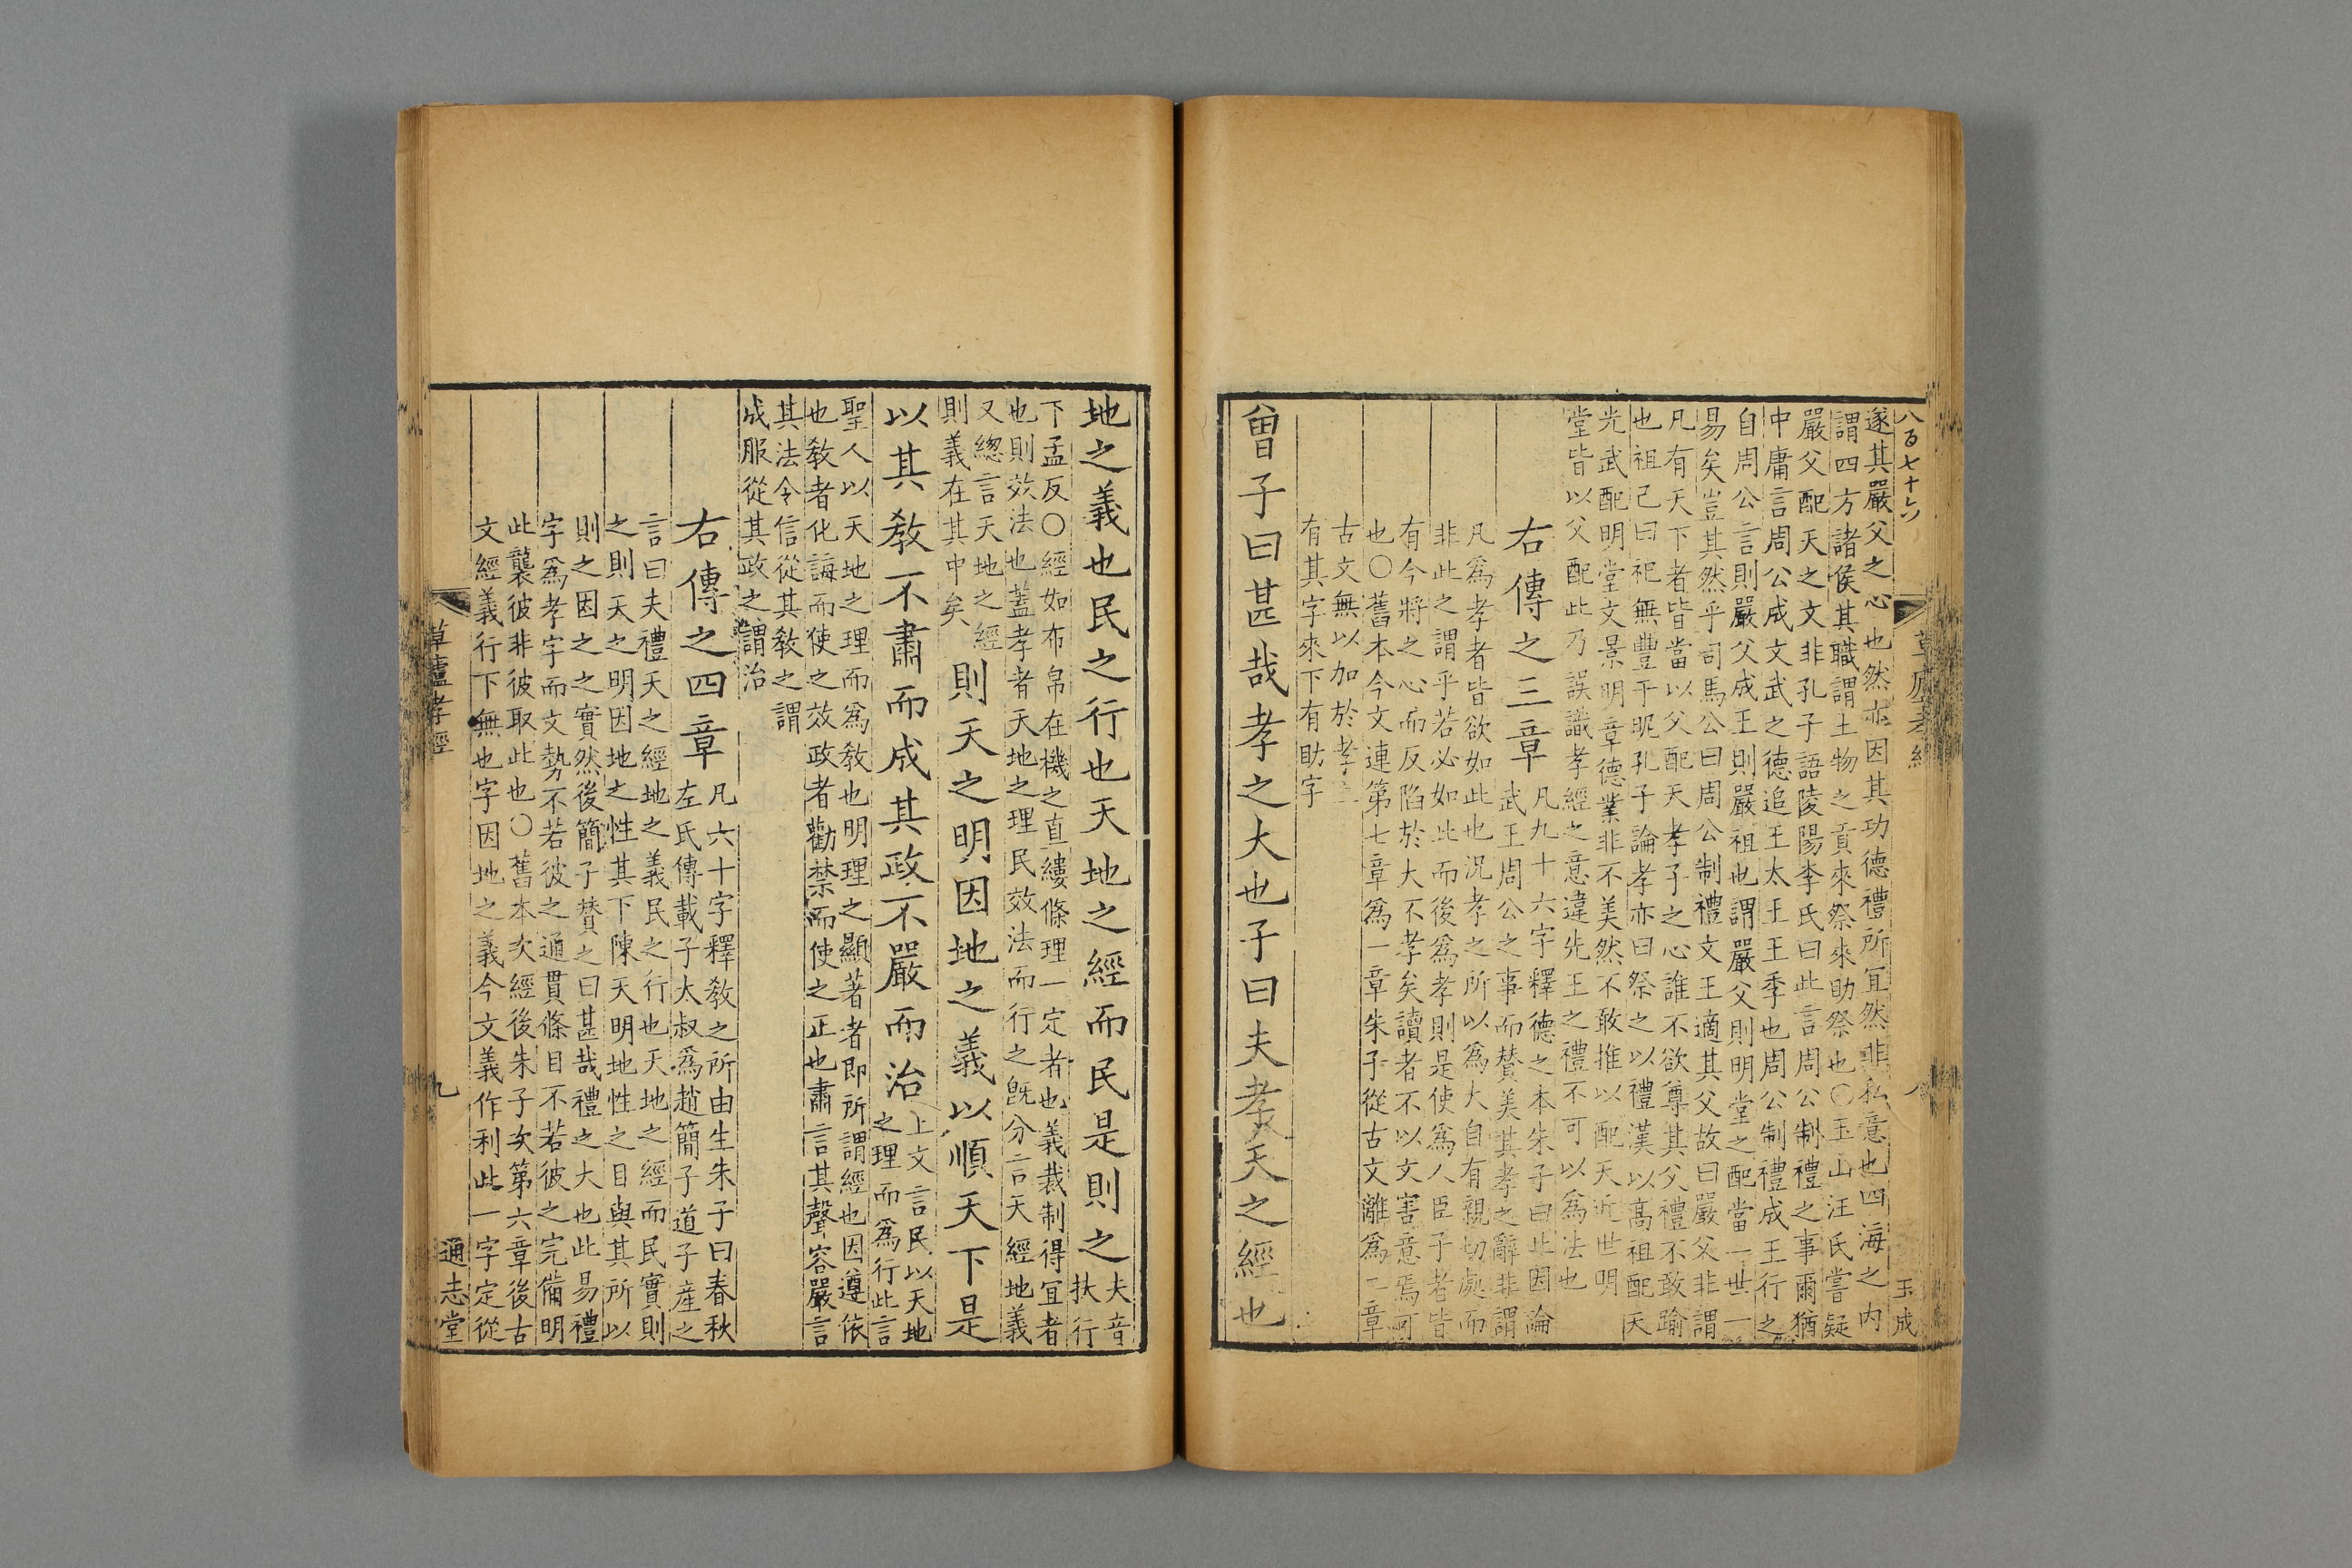 八百七十六
草廬孝經
八
玉成
遂其嚴父之心也然亦因其功德禮所宜然非私意也四海之内
謂四方諸侯其職謂土物之貢來祭來助祭也○玉山汪氏嘗疑
嚴父配天之文非孔子語陵陽李氏曰此言周公制禮之事爾猶
中庸言周公成文武之德追王太王王季也周公制禮成王行之
自周公言則嚴父成王則嚴祖也謂嚴父則明堂之配當一世一
易矣豈其然乎司馬公曰周公制禮文王適其父故曰嚴父非謂
凡有天下者皆當以父配天孝子之心誰不欲尊其父禮不敢踰
也祖己曰祀無豐于昵孔子論孝亦曰祭之以禮漢以高祖配天
光武配明堂文景明章德業非不美然不敢推以配天近世明
堂皆以父配此乃誤識孝經之意違先王之禮不可以為法也
右傳之三章
凡九十六字釋德之本朱子曰此因論
武王周公之事而賛美其孝之辭非謂
凡為孝者皆欲如此也況孝之所以為大自有親切處而
非此之謂乎若必如此而後為孝則是使為人臣子者皆
有今將之心而反陷於大不孝矣讀者不以文害意焉可
也○舊本今文連第七章為一章朱子從古文離為二章
古文無以加於孝
有其字來下有助字
曾子曰甚哉孝之大也子曰夫孝天之經也
地之義也民之行也天地之經而民是則之
夫音
扶行
下孟反○經如布帛在機之直縷條理一定者也義裁制得宜者
也則效法也蓋孝者天地之理民效法而行之既分言天經地義
又緫言天地之經
則義在其中矣
則天之明因地之義以順天下是
以其教不肅而成其政不嚴而治
上文言民以天地
之理而為行此言
聖人以天地之理而為教也明理之顯著者即所謂經也因遵依
也教者化誨而使之效政者勸禁而使之正也肅言其聲容嚴言
其法令信從其教之謂
成服從其政之謂治
右傳之四章
凡六十字釋教之所由生朱子曰春秋
左氏傳載子太叔為趙簡子道子產之
言曰夫禮天之經地之義民之行也天地之經而民實則
之則天之明因地之性其下陳天明地性之目與其所以
則之因之之實然後簡子賛之曰甚哉禮之大也此易禮
字為孝字而文勢不若彼之通貫條目不若彼之完備明
此襲彼非彼取此也○舊本次經後朱子次第六章後古
文經義行下無也字因地之義今文義作利此一字定從
草廬孝經
九
通志堂